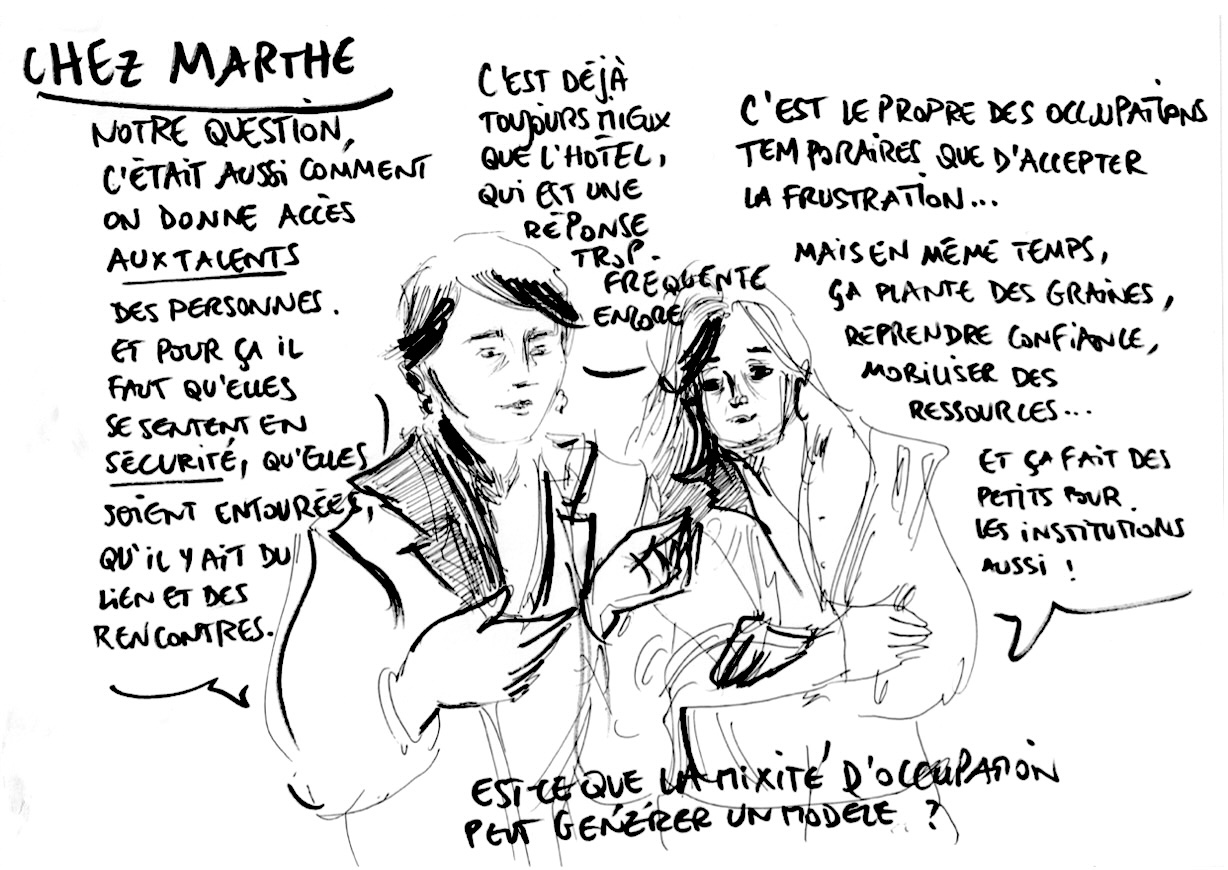 CHEZ MARTHE
NOTRE QUESTION,
C'ÉTAIT AUSSI COMMENT
ON DONNE ACCÈS
AUX TALENTS
DES PERSONNES.
ET POUR ÇA IL
FAUT QU'ELLES
SE SENTENT EN
SÉCURITÉ, QU'ELLES
SOIENT ENTOURÉES,
QU'IL Y AIT DU
LIEN ET DES
RENCONTRES.
C'EST DÉJÀ
TOUJOURS MIEUX
QUE L'HÔTEL,
QUI EST UNE
RÉPONSE
TROP
FRÉQUENTE
ENCORE
C'EST LE PROPRE DES OCCUPATIONS
TEMPORAIRES QUE D'ACCEPTER
LA FRUSTRATION...
MAIS EN MÊME TEMPS,
ÇA PLANTE DES GRAINES,
REPRENDRE CONFIANCE,
MOBILISER DES
RESSOURCES...
ET ÇA FAIT DES
PETITS POUR
LES INSTITUTIONS
AUSSI !
EST-CE QUE LA MIXITÉ D'OCCUPATION
PEUT GÉNÉRER UN MODÈLE ?